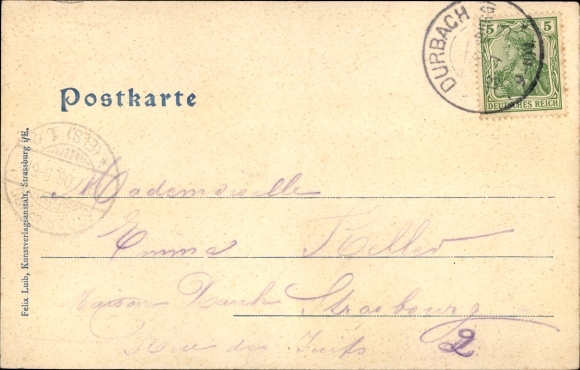 DURBACH
5 5
DEUTSCHES REICH
Postkarte
(ELS)
Felix Luib, Kunstverlagsanstalt, Strassburg i/E.
Mademoiselle
Emma Keller
Maison Strasbourg
Rue des Juifs 2